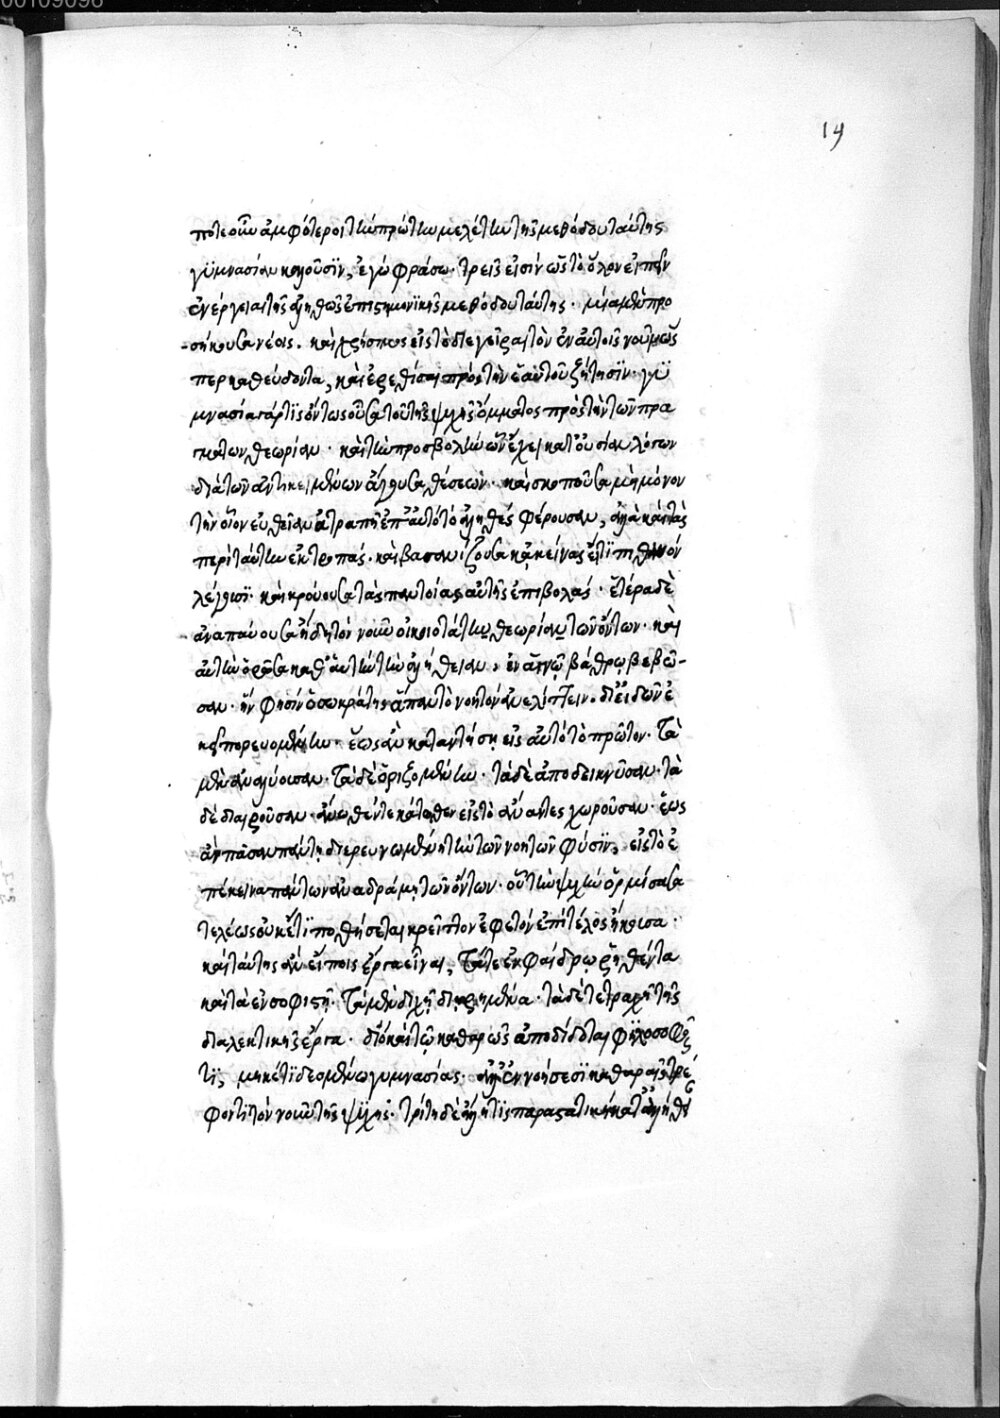 00109098
19
ποτε οὖν ἀμφότεροι τὴν πρώτην μελέτην τῆς μεθόδου ταύτης
γυμνασίαν καλοῦσϊν, ἐγὼ φράσω. τρεῖς εἰσὶν ὡς τὸ ὅλον εἰπεῖν
ἐνέργειαι τῆς ἀληθῶς ἐπιστημονϊκῆς μεθόδου ταύτης. μία μὲν προ
σήκουσα νέοις. καὶ χρήσιμος εἰς τὸ διεγεῖραι τὸν ἐν αὐτοῖς νοῦν ὥς
περ καθεύδοντα, καὶ ἐρεθίσαι πρὸς τὴν ἑαυτοῦ ζήτησϊν. γυ
μνασία γάρ τϊς ὄντως οὖσα τοῦ τῆς ψυχῆς ὄμματος πρὸς τὴν τῶν πρα
γμάτων θεωρίαν. καὶ τὴν προσβολὴν ὧν ἔχει κατ' οὐσίαν λόγων
διὰ τῶν ἀντικειμένων ἄγουσα θέσεων. καὶ σκοποῦσα μὴ μόνον
τὴν οἷον εὐθεῖαν ἀτραπὴν ἐπ' αὐτὸ τὸ ἀληθὲς φέρουσαν, ἀλλὰ καὶ τὰς
περὶ ταύτην ἐκτροπάς. καὶ βασανίζουσα κἀκείνας εἴ τϊ πιθανὸν
λέγουσϊ. καὶ κρούουσα τὰς παντοίας αὐτῆς ἐπιβολάς. ἑτέρα δὲ
ἀναπαύουσα ἤδη τὸν νοῦν οἰκειοτάτῃ θεωρίᾳ τῶν ὄντων. καὶ
αὐτὴν ὁρῶσα καθ' αὑτὴν τὴν ἀλήθειαν, ἐν ἁγνῷ βάθρῳ βεβῶ-
σαν. ἥν φησϊν ὁ σωκράτης ἅπαν τὸ νοητὸν ἀνελίττειν. δι' εἰδῶν ἐ
κεῖ πορευομένην. ἕως ἂν καταντήσῃ εἰς αὐτὸ τὸ πρῶτον. Τὰ
μὲν ἀναλύουσαν. Τὰ δὲ ὁριζομένην. τὰ δὲ ἀποδεικνῦσαν. τὰ
δὲ διαιροῦσαν. ἄνωθέν τε κάτωθεν εἰς τὸ ἄναντες χωροῦσαν. ἕως
ἂν πᾶσαν πάντῃ διερευνωμένη τὴν τῶν νοητῶν φύσϊν, εἰς τὸ ἐ
πέκεινα πάντων ἀναδράμῃ τῶν ὄντων. οὗ τὴν ψυχὴν ὁρμίσασα
τελέως οὐκέτϊ ποθήσεται κρεῖττον ἐφετὸν ἐπὶ τέλος ἥκουσα.
καὶ ταύτης ἂν εἴποις ἔργα εἶναι, Τά τε ἐν φαίδρῳ ῥηθέντα
καὶ τὰ ἐν σοφιστῇ. Τὰ μὲν διχῇ διῃρημένα. τὰ δὲ τετραχῇ τῆς
διαλεκτικῆς ἔργα. διὸ καὶ τῷ καθαρῶς ἀποδίδοται φϊλοσοφοῦν
τϊ, μηκέτϊ δεομένῳ γυμνασίας. ἀλλ' ἐν νοήσεσϊ καθαραῖς τρέ
φοντϊ τὸν νοῦν τῆς ψυχῆς. τρίτη δὲ ἀλλη τϊς παραστατικὴ κατ' ἀλήθει